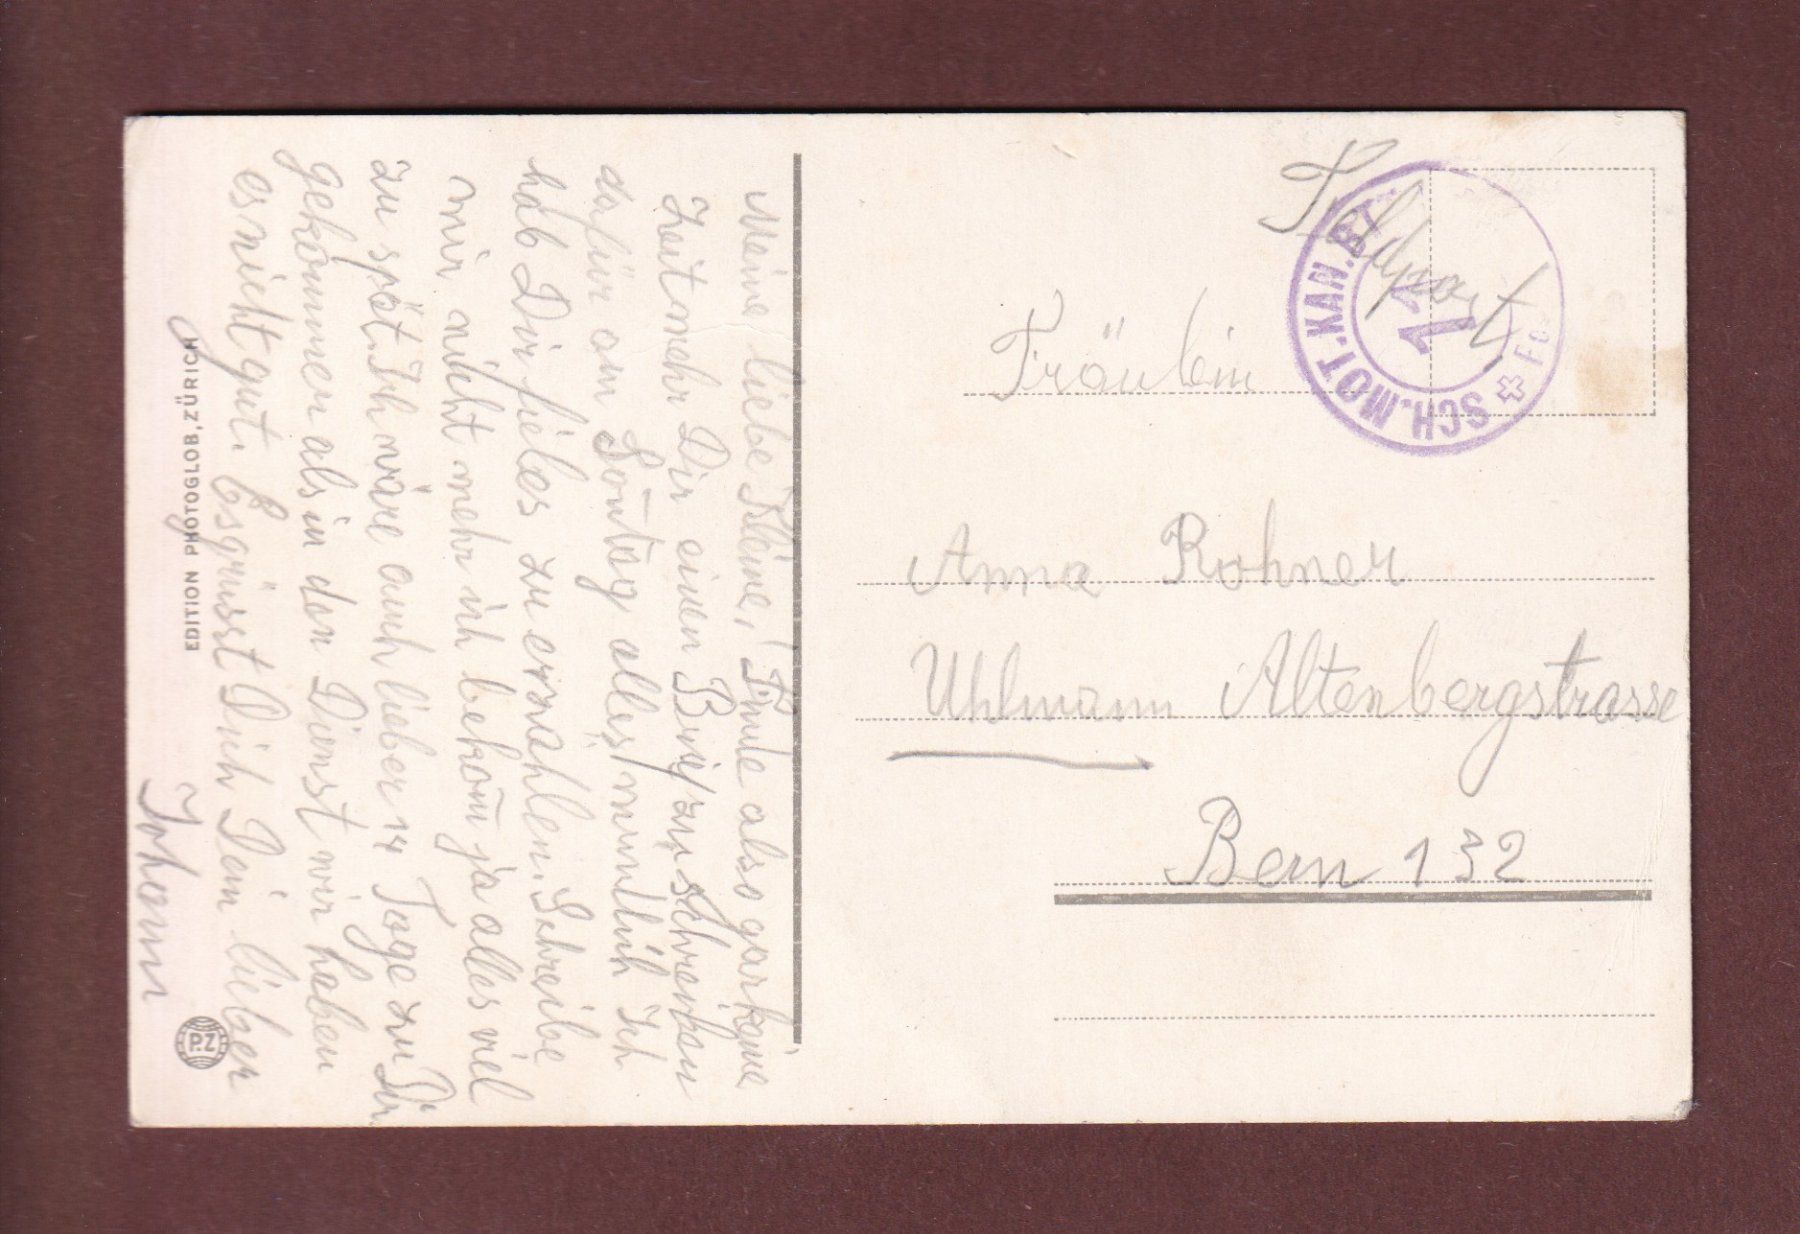 Meine liebe Kleine! Finde also garkeine
Zeit mehr Dir einen Brief zu schreiben
dafür am Son̄tag alles mündlich Ich
hab Dir fieles zu erzahlen. Schreibe
mir nicht mehr ich bekom̄ ja alles viel
zu spät. Ich wäre auch lieber 14 Tage zu Dir
gekommen als in den Dienst wir haben
es nicht gut. Es grüsst Dich Dein lieber
Johann
EDITION PHOTOGLOB, ZÜRICH
P.Z
Feldpost
SCH.MOT.KAN.BT
11
Fräulein
Anna Rohner
Uhlmann Altenbergstrasse
Bern 132